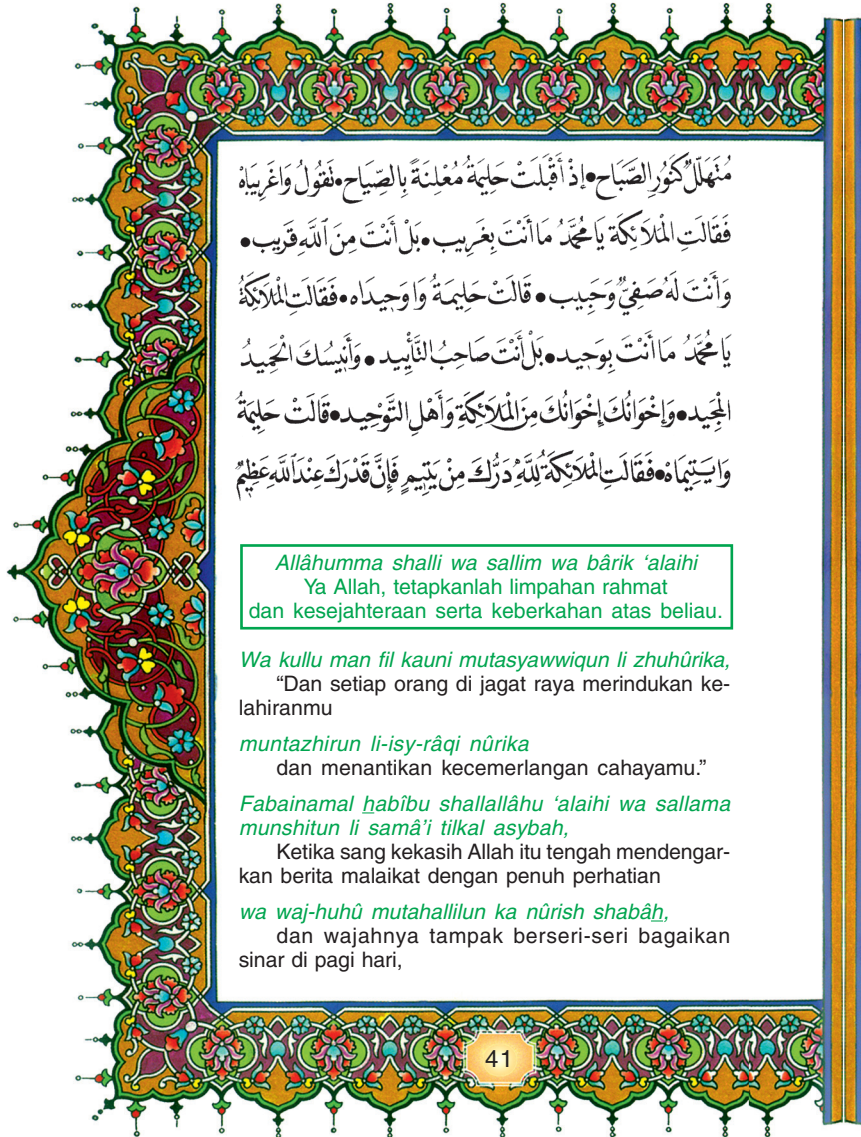 مُتَهَلِّلٌ كَنُورِ الصَّبَاح • إِذْ أَقْبَلَتْ حَلِيمَةُ مُعْلِنَةً بِالصِّيَاح • تَقُولُ وَاغَرِيبَاهْ
فَقَالَتِ الْمَلَائِكَة يَا مُحَمَّدُ مَا أَنْتَ بِغَرِيب • بَلْ أَنْتَ مِنَ ٱللَّهِ قَرِيب •
وَأَنْتَ لَهُ صَفِيٌّ وَحَبِيب • قَالَتْ حَلِيمَةُ وَا وَحِيدَاه • فَقَالَتِ الْمَلَائِكَةُ
يَا مُحَمَّدُ مَا أَنْتَ بِوَحِيد • بَلْ أَنْتَ صَاحِبُ التَّأْيِيد • وَأَنِيسُكَ الْحَمِيدُ
الْمَجِيد • وَإِخْوَانُكَ إِخْوَانُكَ مِنَ الْمَلَائِكَةِ وَأَهْلِ التَّوْحِيد • قَالَتْ حَلِيمَةُ
وَايَتِيمَاهْ • فَقَالَتِ الْمَلَائِكَةُ لِلَّهِ دَرُّكَ مِنْ يَتِيمٍ فَإِنَّ قَدْرَكَ عِنْدَ ٱللَّهِ عَظِيمٌ
Allâhumma shalli wa sallim wa bârik ‘alaihi
Ya Allah, tetapkanlah limpahan rahmat
dan kesejahteraan serta keberkahan atas beliau.
Wa kullu man fil kauni mutasyawwiqun li zhuhûrika,
“Dan setiap orang di jagat raya merindukan ke-
lahiranmu
muntazhirun li-isy-râqi nûrika
dan menantikan kecemerlangan cahayamu.”
Fabainamal h̲abîbu shallallâhu ‘alaihi wa sallama
munshitun li samâ’i tilkal asybah,
Ketika sang kekasih Allah itu tengah mendengar-
kan berita malaikat dengan penuh perhatian
wa waj-huhû mutahallilun ka nûrish shabâh̲,
dan wajahnya tampak berseri-seri bagaikan
sinar di pagi hari,
41